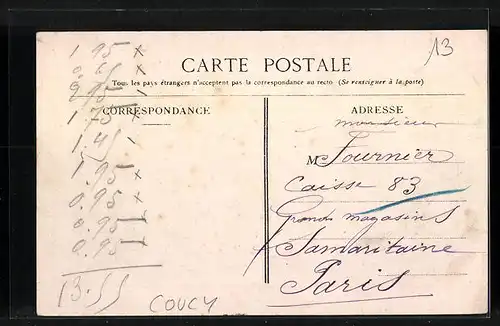 13
CARTE POSTALE
Tous les pays étrangers n'acceptent pas la correspondance au recto (Se renseigner à la poste)
CORRESPONDANCE
1 95 x
0.65
2 95
1 75
1.45
1.95 x
0.95 x
0.95
0.95
13.55
COUCY
ADRESSE
monsieur
M Fournier
Caisse 83
Grands magasins
Samaritaine
Paris